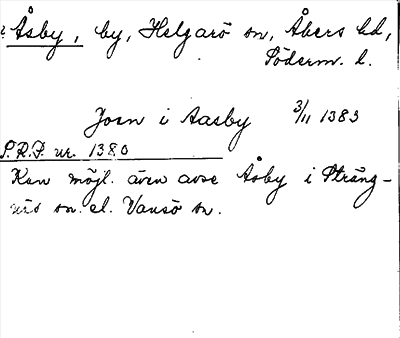 ? Åsby, by, Helgarö sn, Åkers hd,
Söderm. l.
Josn i Aasby 3/11 1383
S.R.P. nr. 1380
Kan möjl. även avse Åsby i Sträng-
näs sn. el. Vansö sn.